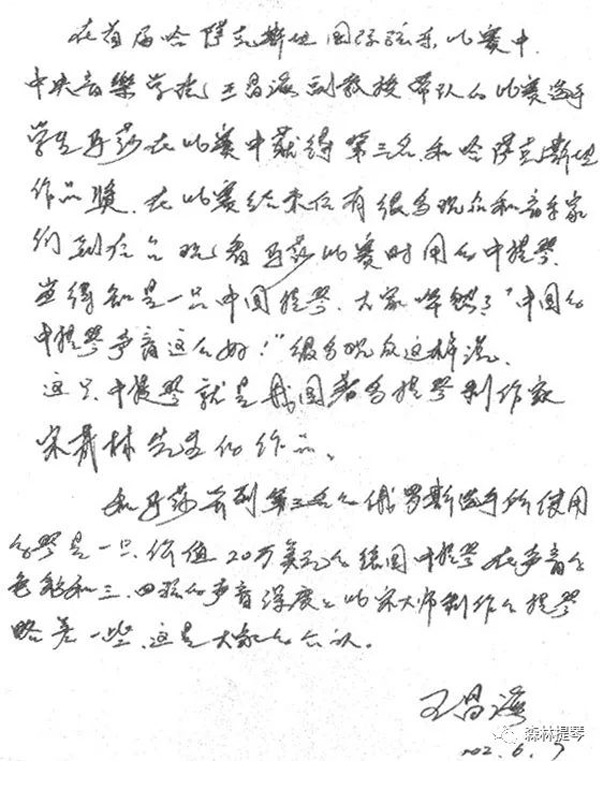 在首届哈萨克斯坦国际弦乐比赛中.
中央音樂学院王昌海副教授带队的比赛选手
学生马莎在比赛中获得第三名.和哈萨克斯坦
作品獎.在比赛结束后有很多观众和音乐家
们到后台观看马莎比赛时用的中提琴.
当得知是一只中国提琴.大家惊叹了"中国的
中提琴声音这么好！"很多观众这样说.
这只中提琴就是我国著名提琴制作家
先生的作品。
和马莎并列第三名的俄罗斯选手所使用
的琴是一只价值20万美元的德国中提琴在声音的
色彩和三.四弦的声音深度上比宋大师制作的提琴
略差一些.这是大家的公认。
王昌海
森林提琴
6.7